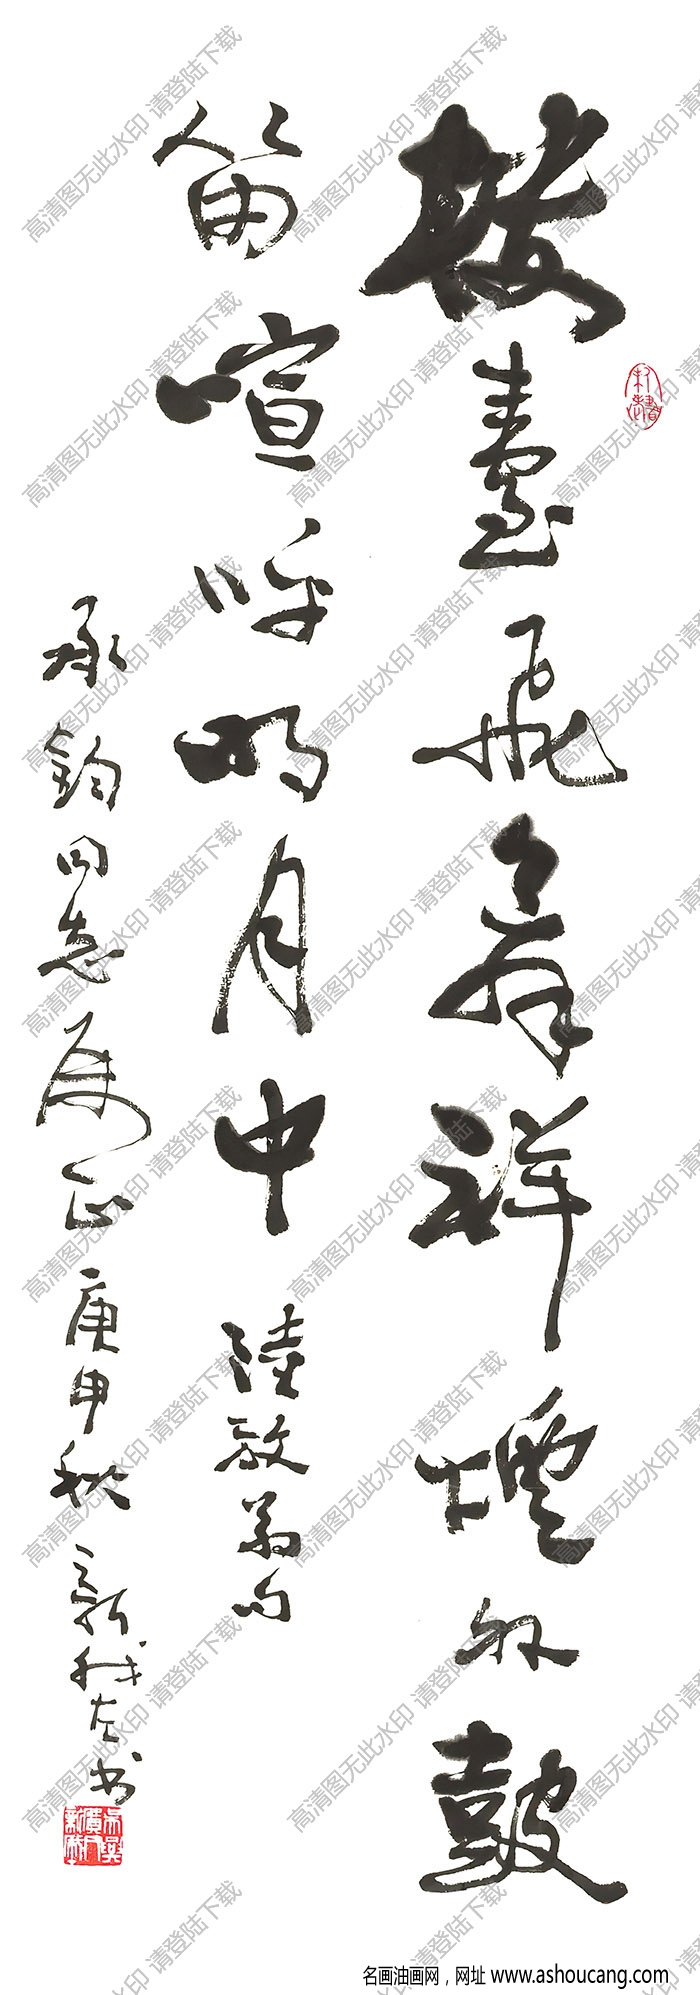 樓臺飛舞祥煙外鼓
笛喧呼明月中 陸放翁句
承鈞同志屬正 庚申秋 新我左书
高清图无此水印 请登陆下载
名画油画网，网址 www.ashoucang.com